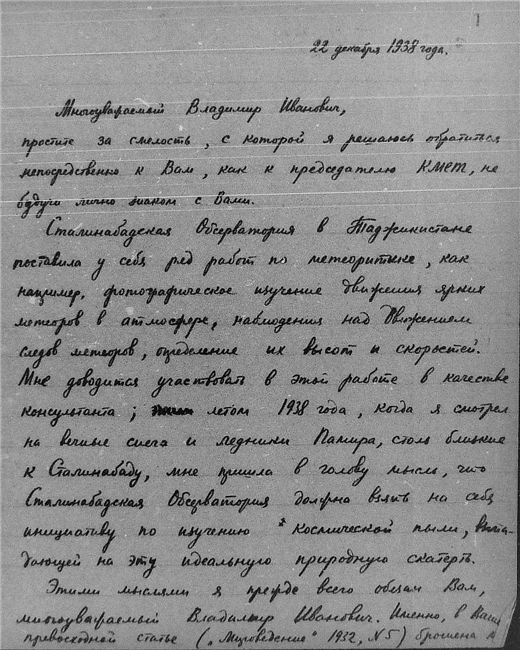 1
22 декабря 1938 года.
Многоуважаемый Владимир Иванович,
простите за смелость, с которой я решаюсь обратиться
непосредственно к Вам, как к председателю КМЕТ, не
будучи лично знаком с Вами.
Сталинабадская Обсерватория в Таджикистане
поставила у себя ряд работ по метеоритике, как
например, фотографическое изучение движения ярких
метеоров в атмосфере, наблюдения над движением
следов метеоров, определение их высот и скоростей.
Мне доводится участвовать в этой работе в качестве
консультанта; летом 1938 года, когда я смотрел
на вечные снега и ледники Памира, столь близкие
к Сталинабаду, мне пришла в голову мысль, что
Сталинабадская Обсерватория должна взять на себя
инициативу по изучению космической пыли, выпа-
дающей на эту идеальную природную скатерть.
Этими мыслями я прежде всего обязан Вам,
многоуважаемый Владимир Иванович. Именно, в Вашей
превосходной статье („Мироведение" 1932, N5) брошена